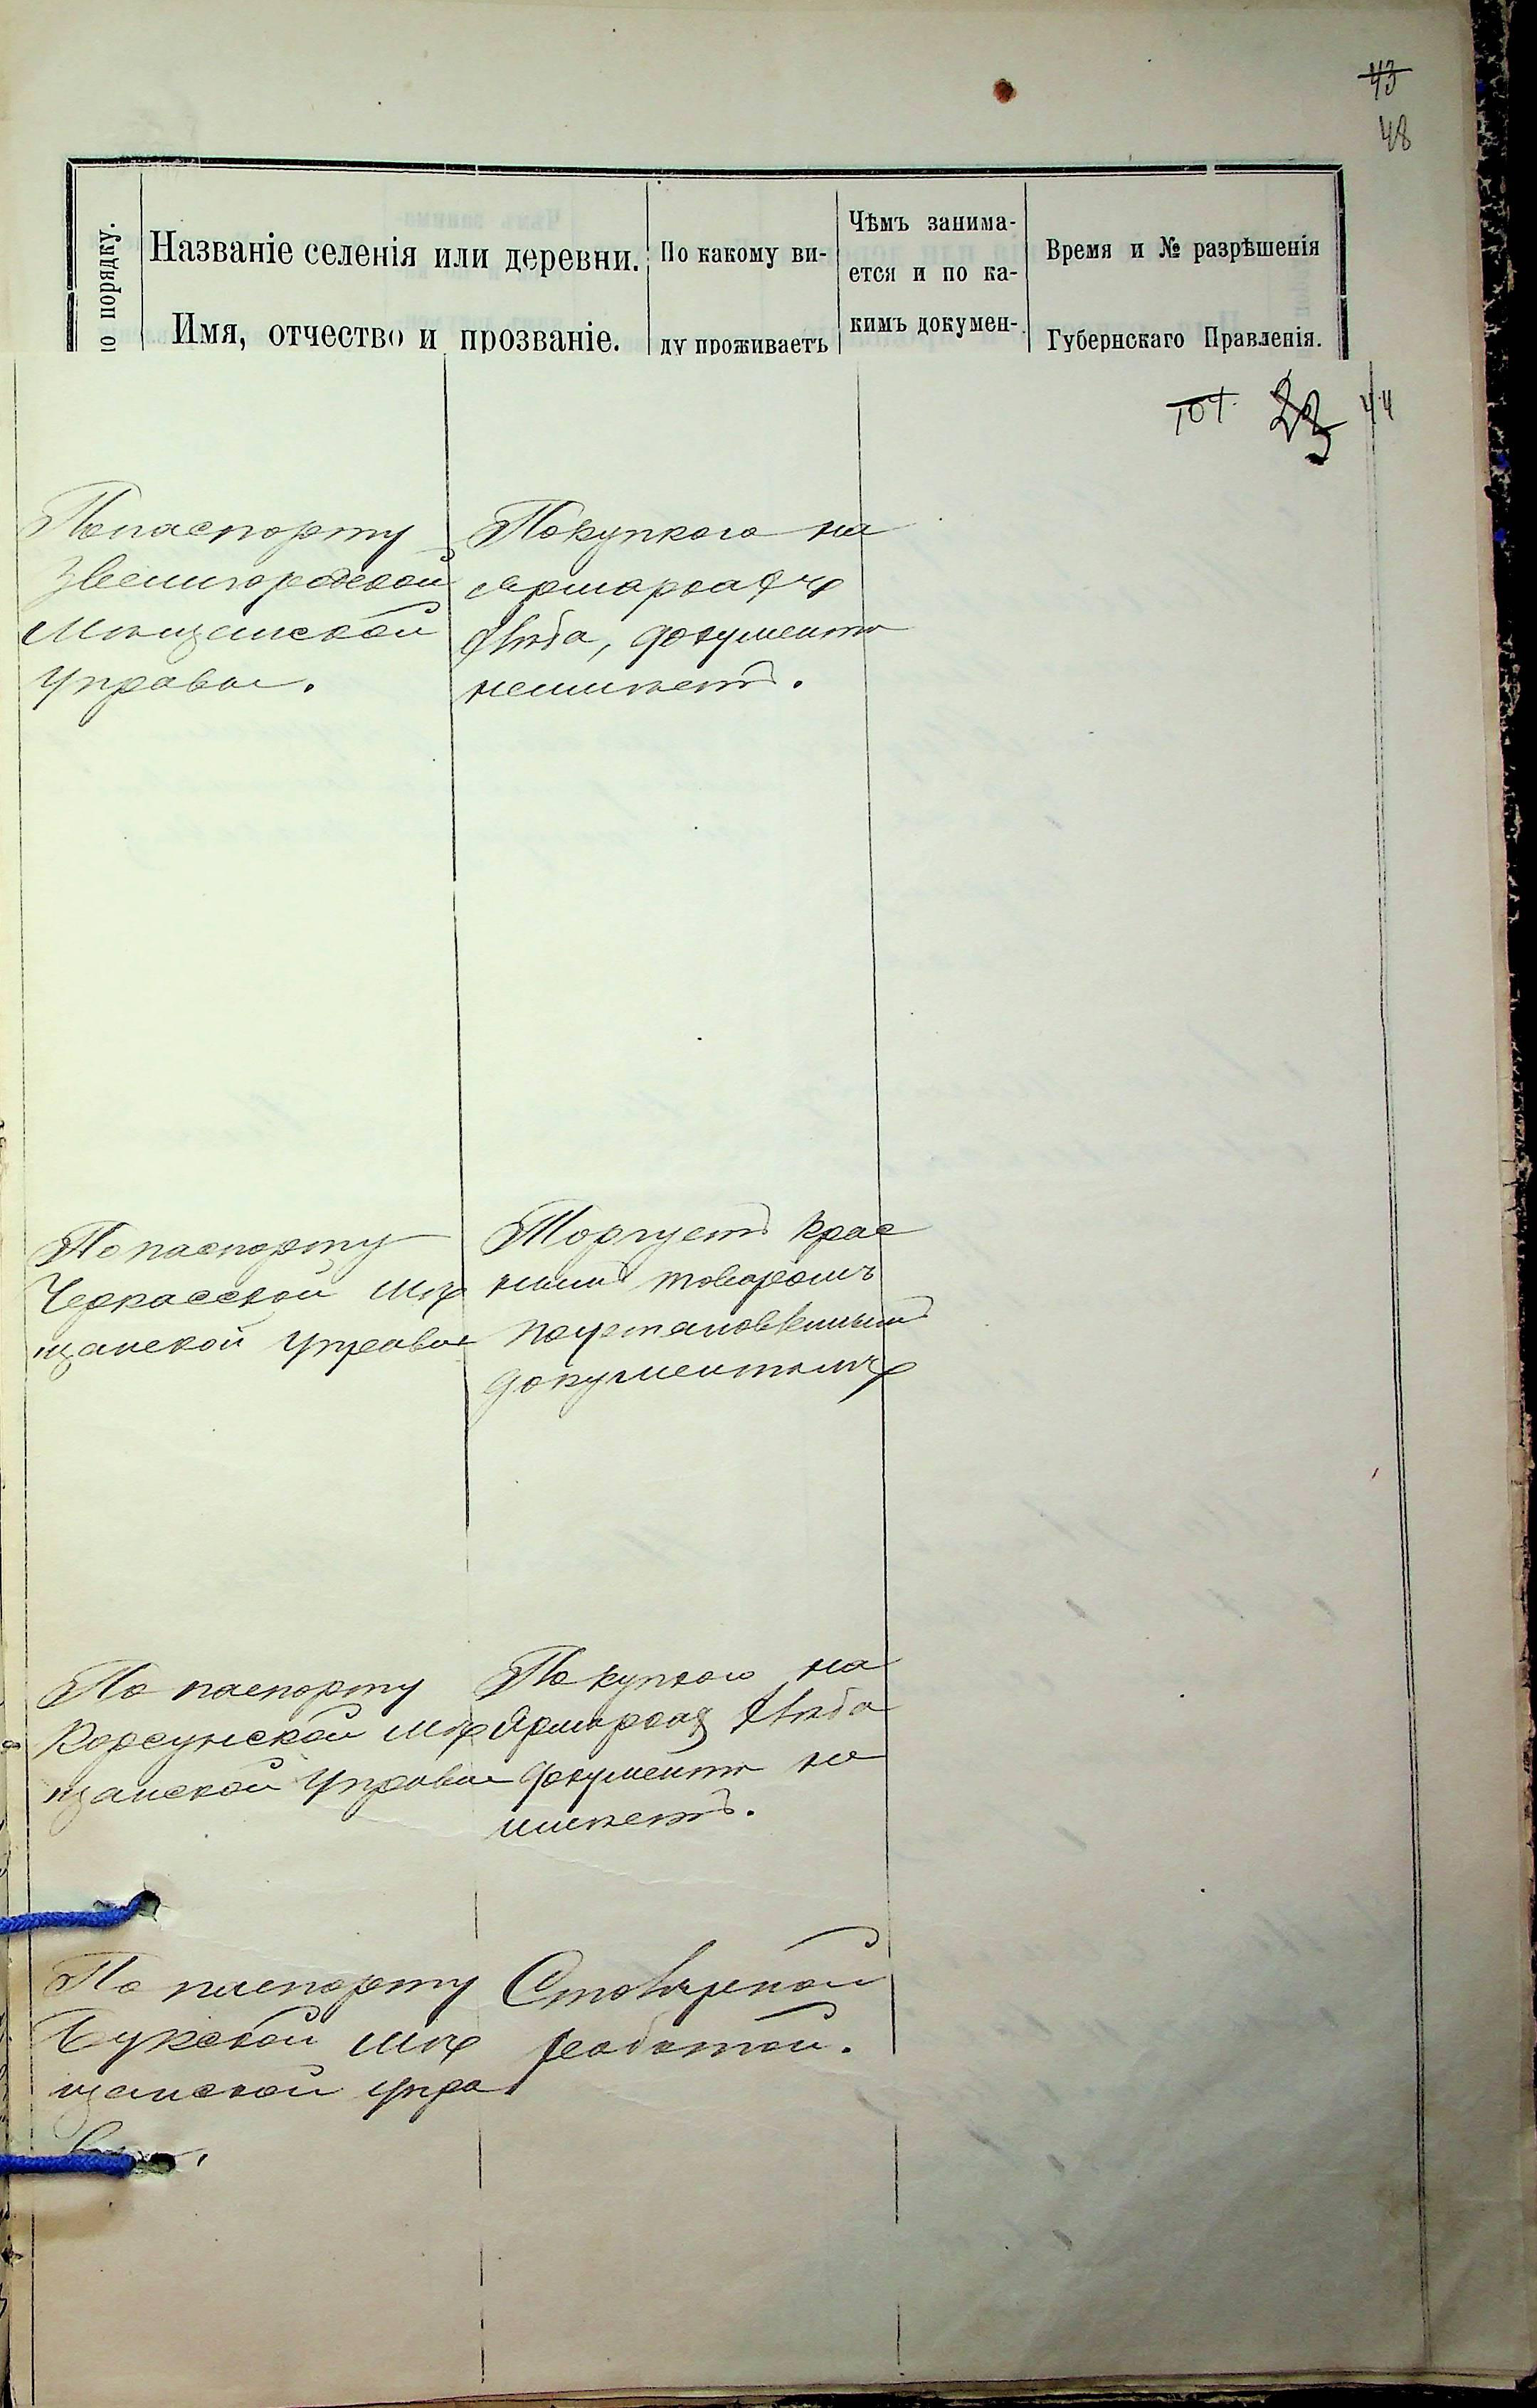 43
48
по порядку.
Названіе селенія или деревни.
Имя, отчество и прозваніе.
По какому ви-
ду проживаетъ
Чѣмъ занима-
ется и по ка-
кимъ докумен-
Время и № разрѣшенія
Губернскаго Правленія.
104. 23 44
По паспорту
Звенигородской
Мѣщанской
Управы.
Покупкою на
Ярмаркахъ
хлѣба, документа
неимѣетъ.
По паспорту
Черкасской Мѣ
щанской Управы
Торгуетъ крас
нымъ товаромъ
поустановленнымъ
документамъ
По паспорту
Корсунской Мѣ
щанской Управы
Покупкою на
Ярмаркахъ хлѣба
документа не
имѣетъ.
По паспорту
Букской Мѣ
щанской Упра
вы.
Столярной
работой.